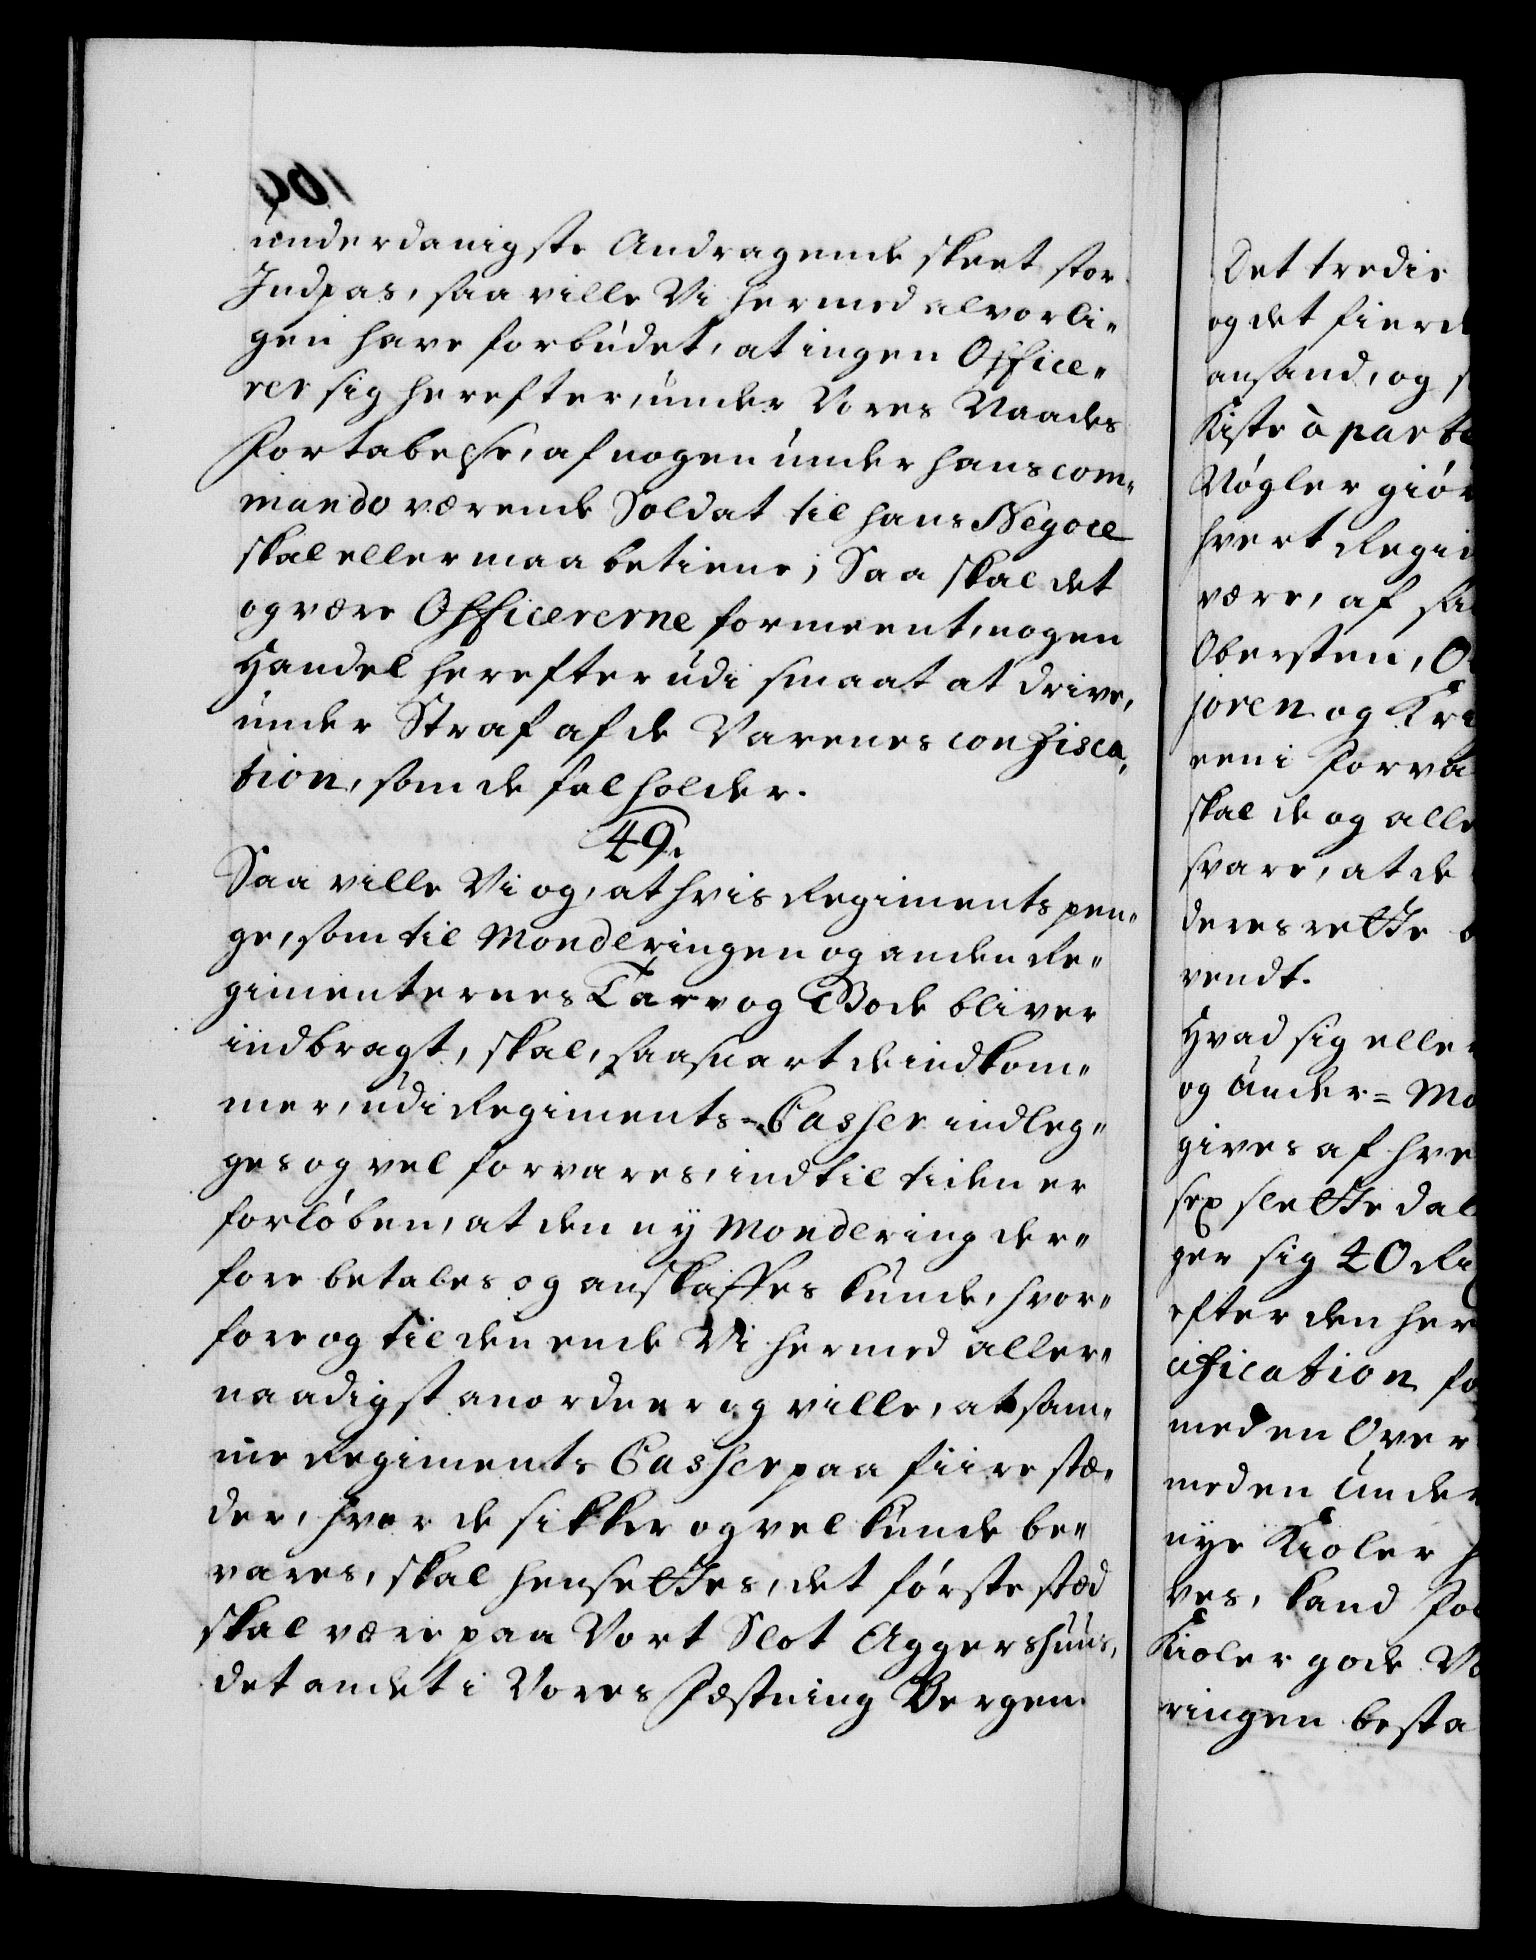 underdanigste Andragende skeet stor
Indpas, saa ville Vi hermed alvorli„
gen have forbudet, at ingen Office„
rer sig herefter, under Vores Naades
Fortabelse, af nogen under hans com„
mando værende Soldat til hans Negoce
skal eller maa betiene; Saa skal det
og være Officererne formeent, nogen
Handel herefter udi smaat at drive,
under Straf af de Varenes confisca„
tion, som de fal holder.
49.
Saa ville Vi og, at hvis Regiments pen„
ge, som til Monderingen og anden Re„
gimenternes Tarv og Bode bliver
indbragt, skal, saasnart de indkom„
mer, udi Regiments-Casser indleg„
ges og vel forvares, indtil tiden er
forløben, at den ny Mondering der„
fore betales og anskaffes kunde, hvor„
fore og til den ende Vi hermed aller„
naadigst anordner og ville, at sam„
me Regiments Casser paa fiire stæ„
der, hvor de sikker og vel kunde be„
vares, skal hensettes, det første stæd
skal være paa Vort Slot Aggershuus,
det andet i Vores Fæstning Bergen.
Det tredie
og det fierd
ansand, og
Kiste à part
Nøgler giør
hvert Regi
være, af
Obersten, O
joren og Kr
een i Forva
skal de og alle
svare, at de
deres rette b
vendt.
Hvad sig elle
og Under= Mo
gives af hve
sex slette dal
ger sig 40 Ri
efter den her
cification fo
med en Over
med en Under
nye Kioler h
ves, kand For
Kioler gode Vo
ringen besta